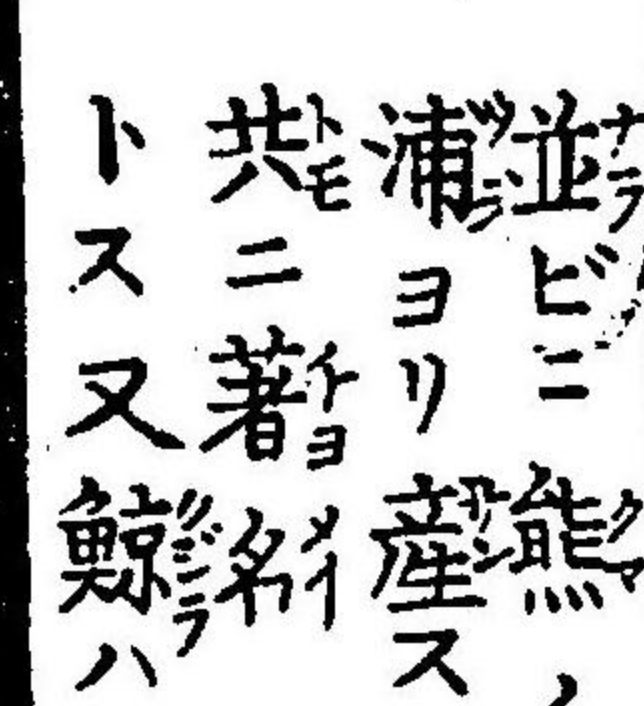 並ビニ熊ノ
浦ヨリ産ス
共ニ著名
トス又鯨ハ